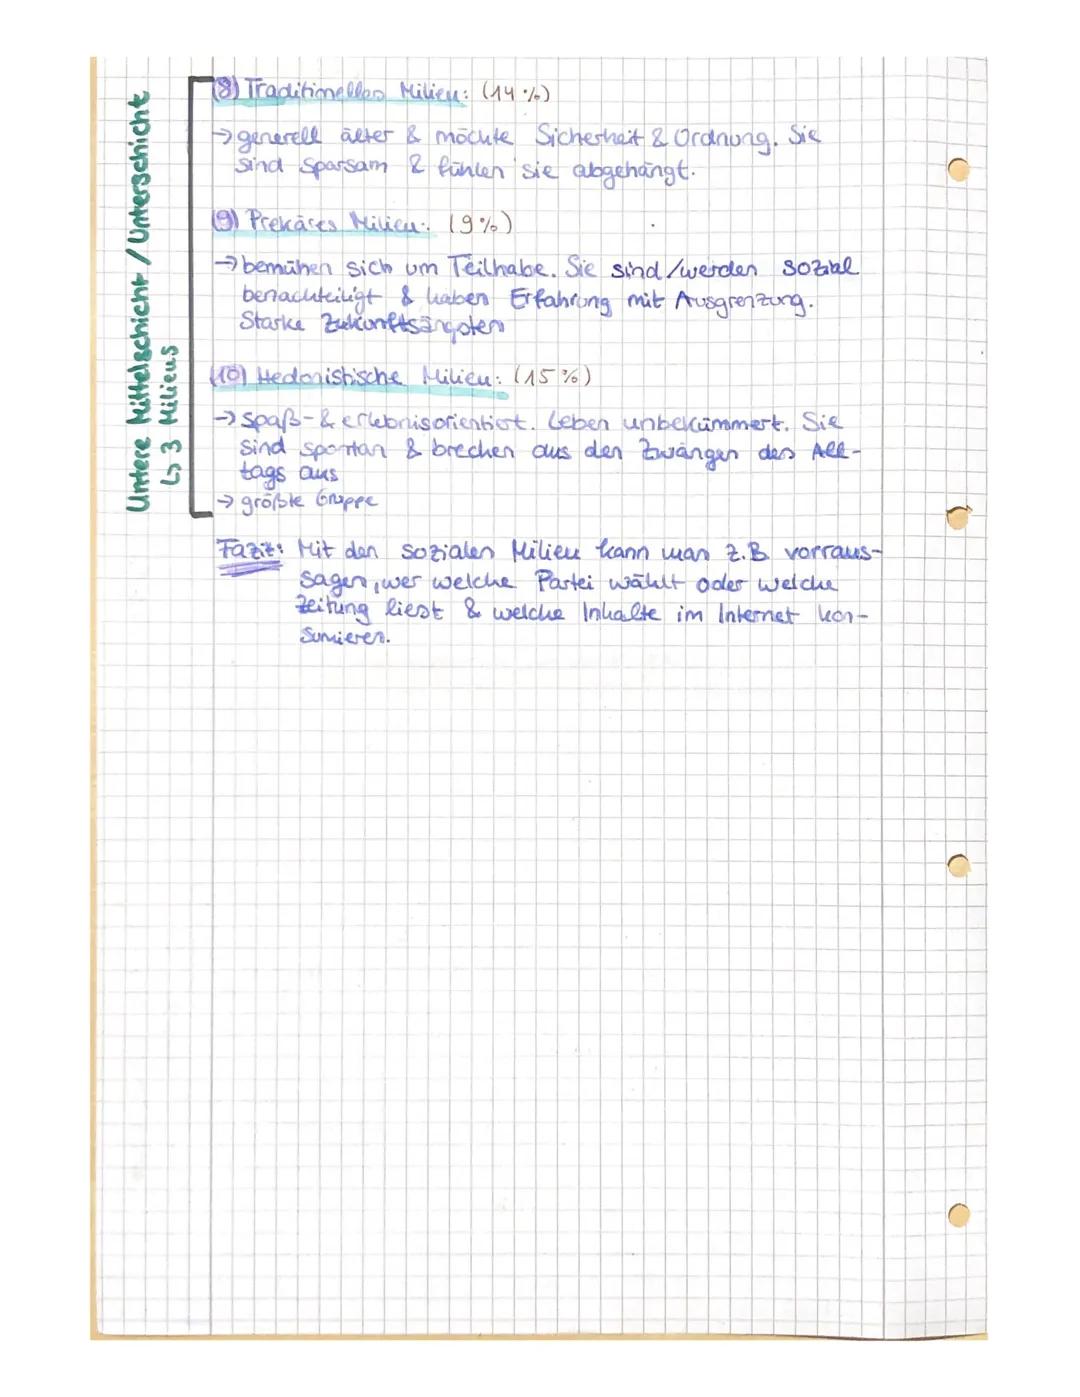 Untere Mittelschicht / Unterschicht
↳ 3 Milieus
(8) Traditionelles Milieu: (14%)
→ generell älter & möchte Sicherheit & Ordnung. Sie
sind sparsam & fühlen sie abgehängt.
(9) Prekäres Milieu: (9%)
→ bemühen sich um Teilhabe. Sie sind/werden sozial
benachteiligt & haben Erfahrung mit Ausgrenzung.
Starke Zukunftsängsten
(10) Hedonistische Milieu: (15%)
→ spaß- & erlebnisorientiert. Leben unbekümmert. Sie
sind spontan & brechen aus den Zwängen des All-
tags aus
→ größte Gruppe
Fazit: Mit den sozialen Milieu kann man z.B vorraus-
sagen, wer welche Partei wählt oder welche
Zeitung liest & welche Inhalte im Internet kon-
sumieren.